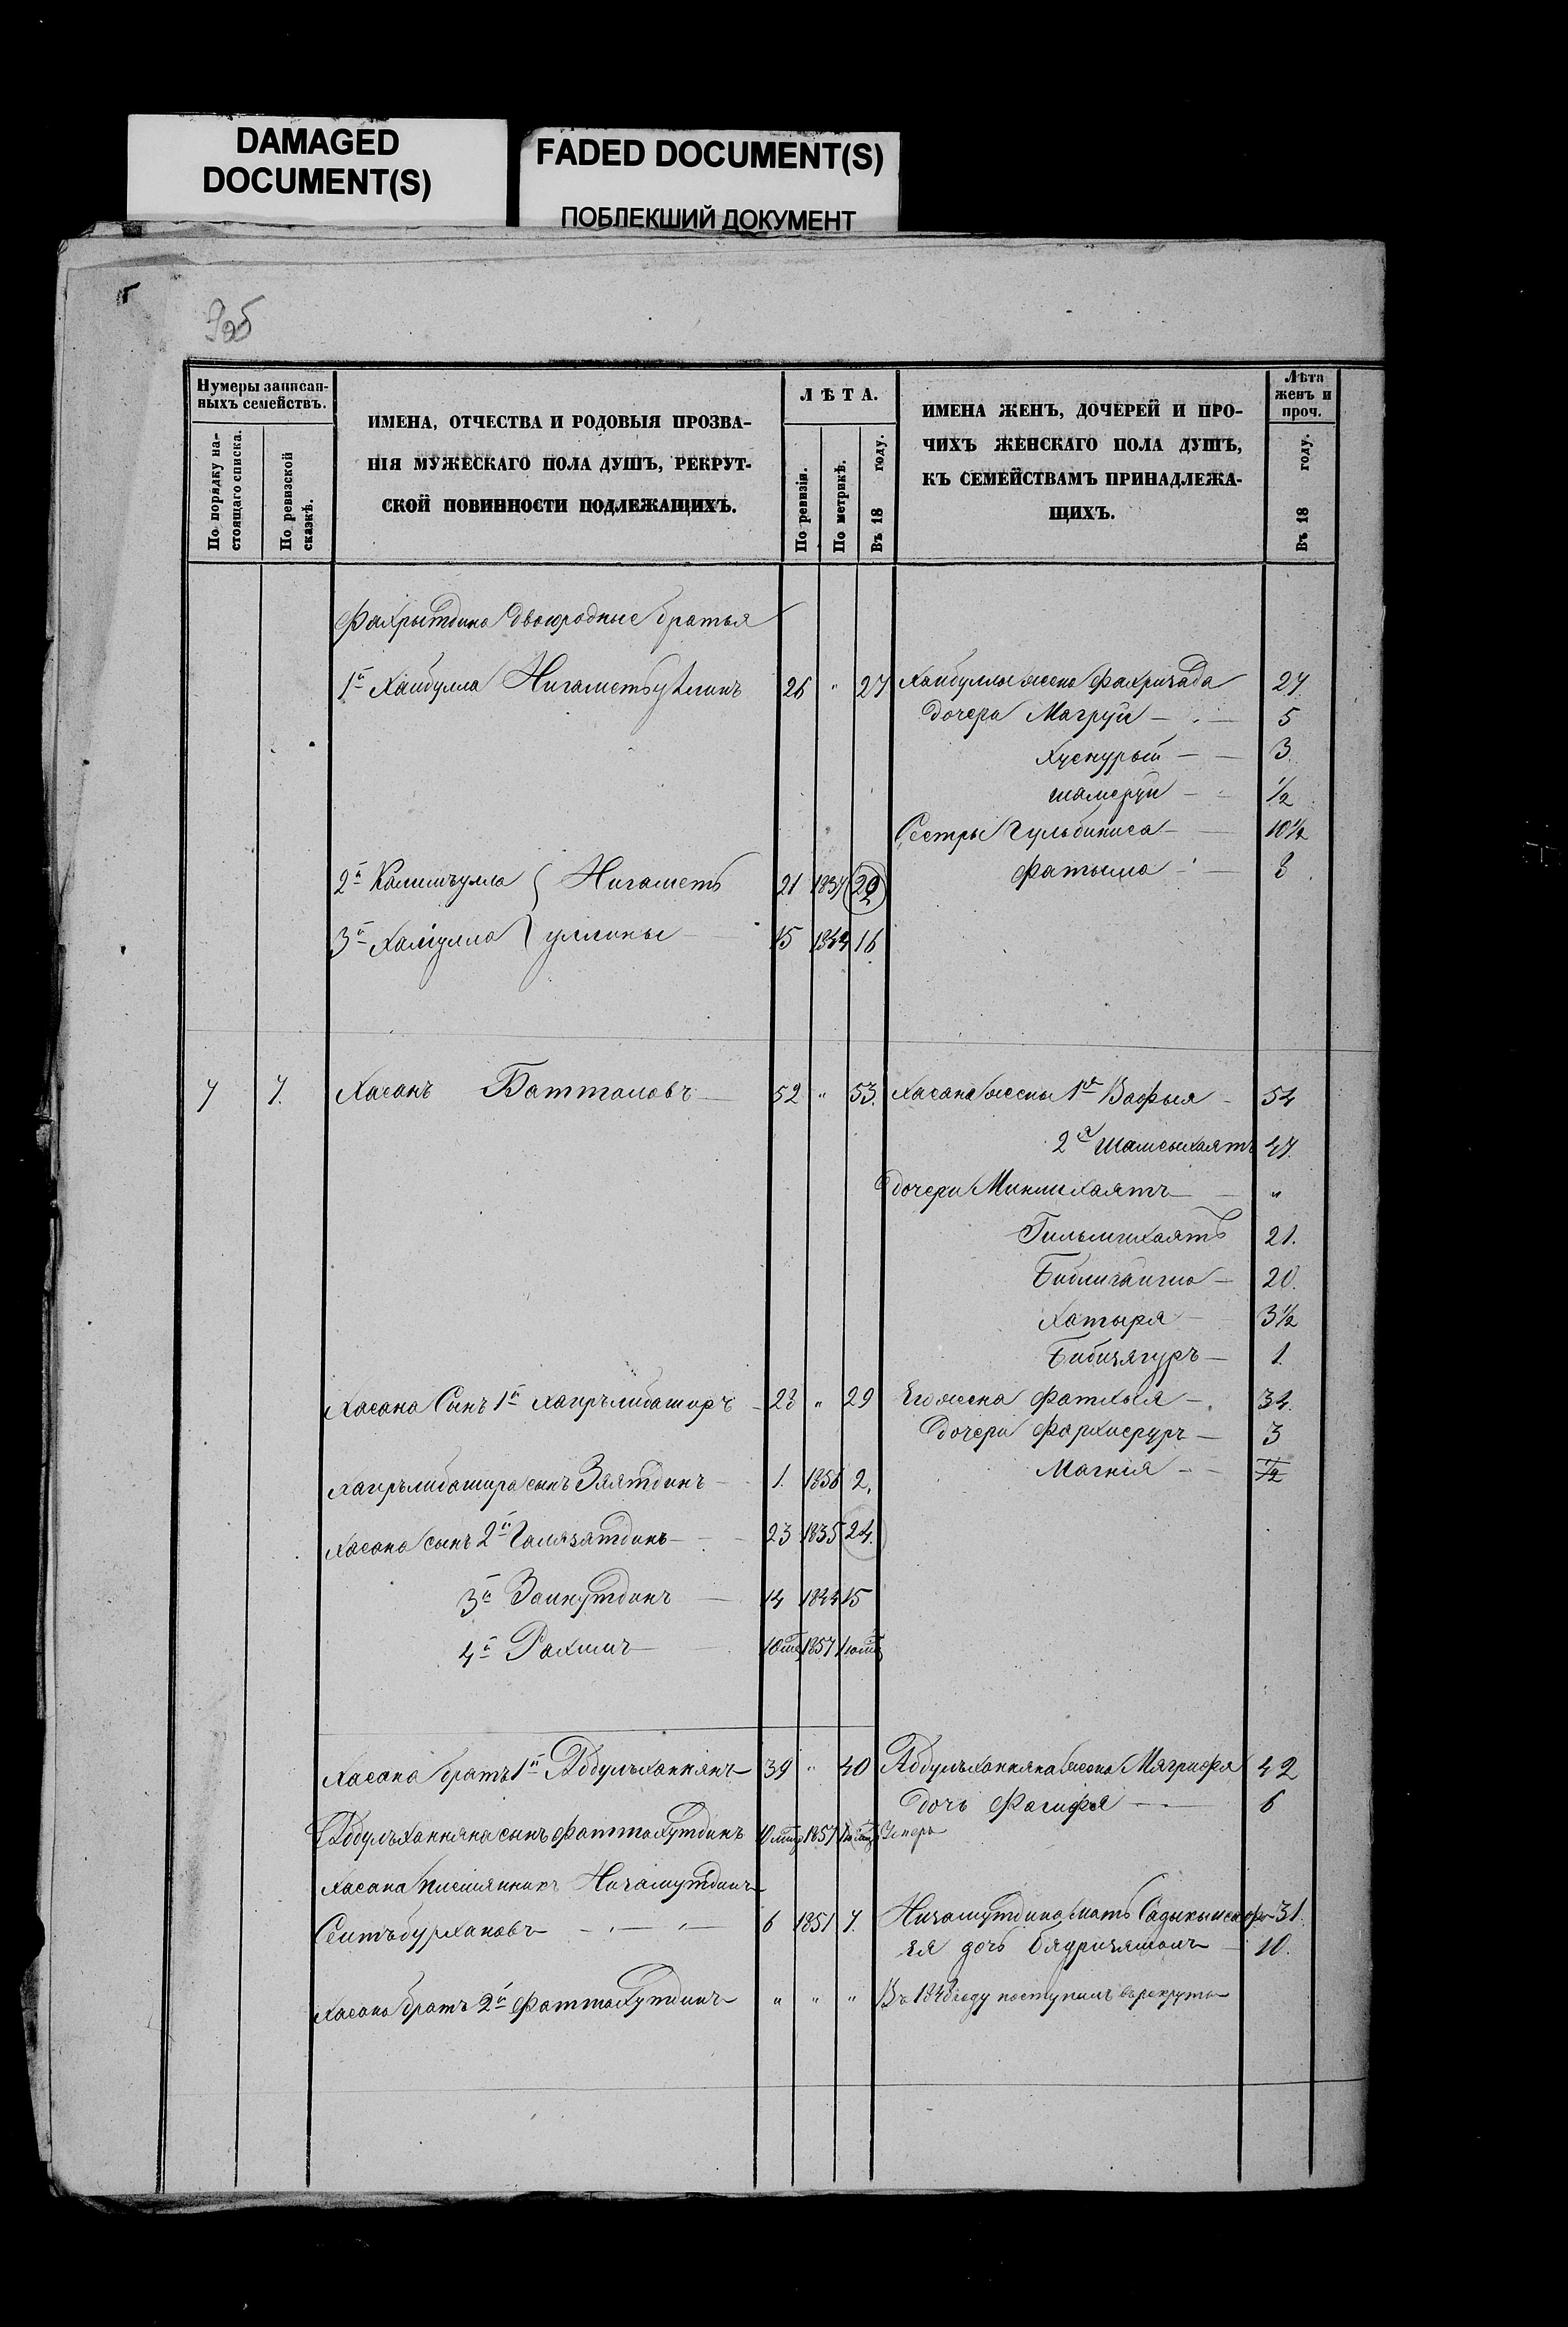 DAMAGED
DOCUMENT(S)
FADED DOCUMENT(S)
ПОБЛЕКШИЙ ДОКУМЕНТ
Нумеры записан-
ныхъ семействъ.
По порядку на-
стоящаго списка.
По ревизской
сказкѣ.
ИМЕНА, ОТЧЕСТВА И РОДОВЫЯ ПРОЗВА-
НІЯ МУЖЕСКАГО ПОЛА ДУШЪ, РЕКРУТ-
СКОЙ ПОВИННОСТИ ПОДЛЕЖАЩИХЪ.
ЛѢТА.
По ревизіи.
По метрикѣ.
Въ 18 году.
ИМЕНА ЖЕНЪ, ДОЧЕРЕЙ И ПРО-
ЧИХЪ ЖЕНСКАГО ПОЛА ДУШЪ,
КЪ СЕМЕЙСТВАМЪ ПРИНАДЛЕЖА-
ЩИХЪ.
Лѣта
женъ и
проч.
Въ 18 году.
Фахрытдина двоюродные братья
1й Хайбулла Нигаметуллинъ 26 " 27 Хайбуллы жена Фахричада 27
дочери Магруй 5
Хуснурый 3
Шамсруй 1/2
Сестры Гульбиниса 10 1/2
2й Калимъулла Нигамет 21 1837 22 Фатыма 8
3й Халіулла уллины 15 1844 16
7 7. Хасанъ Батталовъ 52 " 53. Хасана жены 1я Вафыя 54
2я Шамсыхаятъ 47.
дочери Минлихаятъ "
Гильмихаятъ 21.
20.
Хатыря 3 1/2
1.
Хасана Сынъ 1й 28 " 29 Его жена Фатхыя 34.
дочери Фархисруръ 3
сынъ Зяятдинъ 1. 1856 2. Магнія 1/2
Хасана сынъ 2й Галязятдинъ 23 1835 24.
3й Заинутдинъ 14 1844 15
4й Рахимъ 1857
Хасана братъ 1й Абдулъханнянъ 39 " 40 Абдулъханняна жена Мягрифя 42
дочь Фагифя 6
Абдулъханняна сынъ Фаттахутдинъ 1857 Умеръ
Хасана племянникъ Низамутдинъ
Сеитъбурхановъ 6 1851 7. Низамутдина мать 31.
Ея дочь Бядризямалъ 10.
Хасана братъ 2й Фаттахутдинъ " " " Въ 1848 году поступилъ въ рекруты